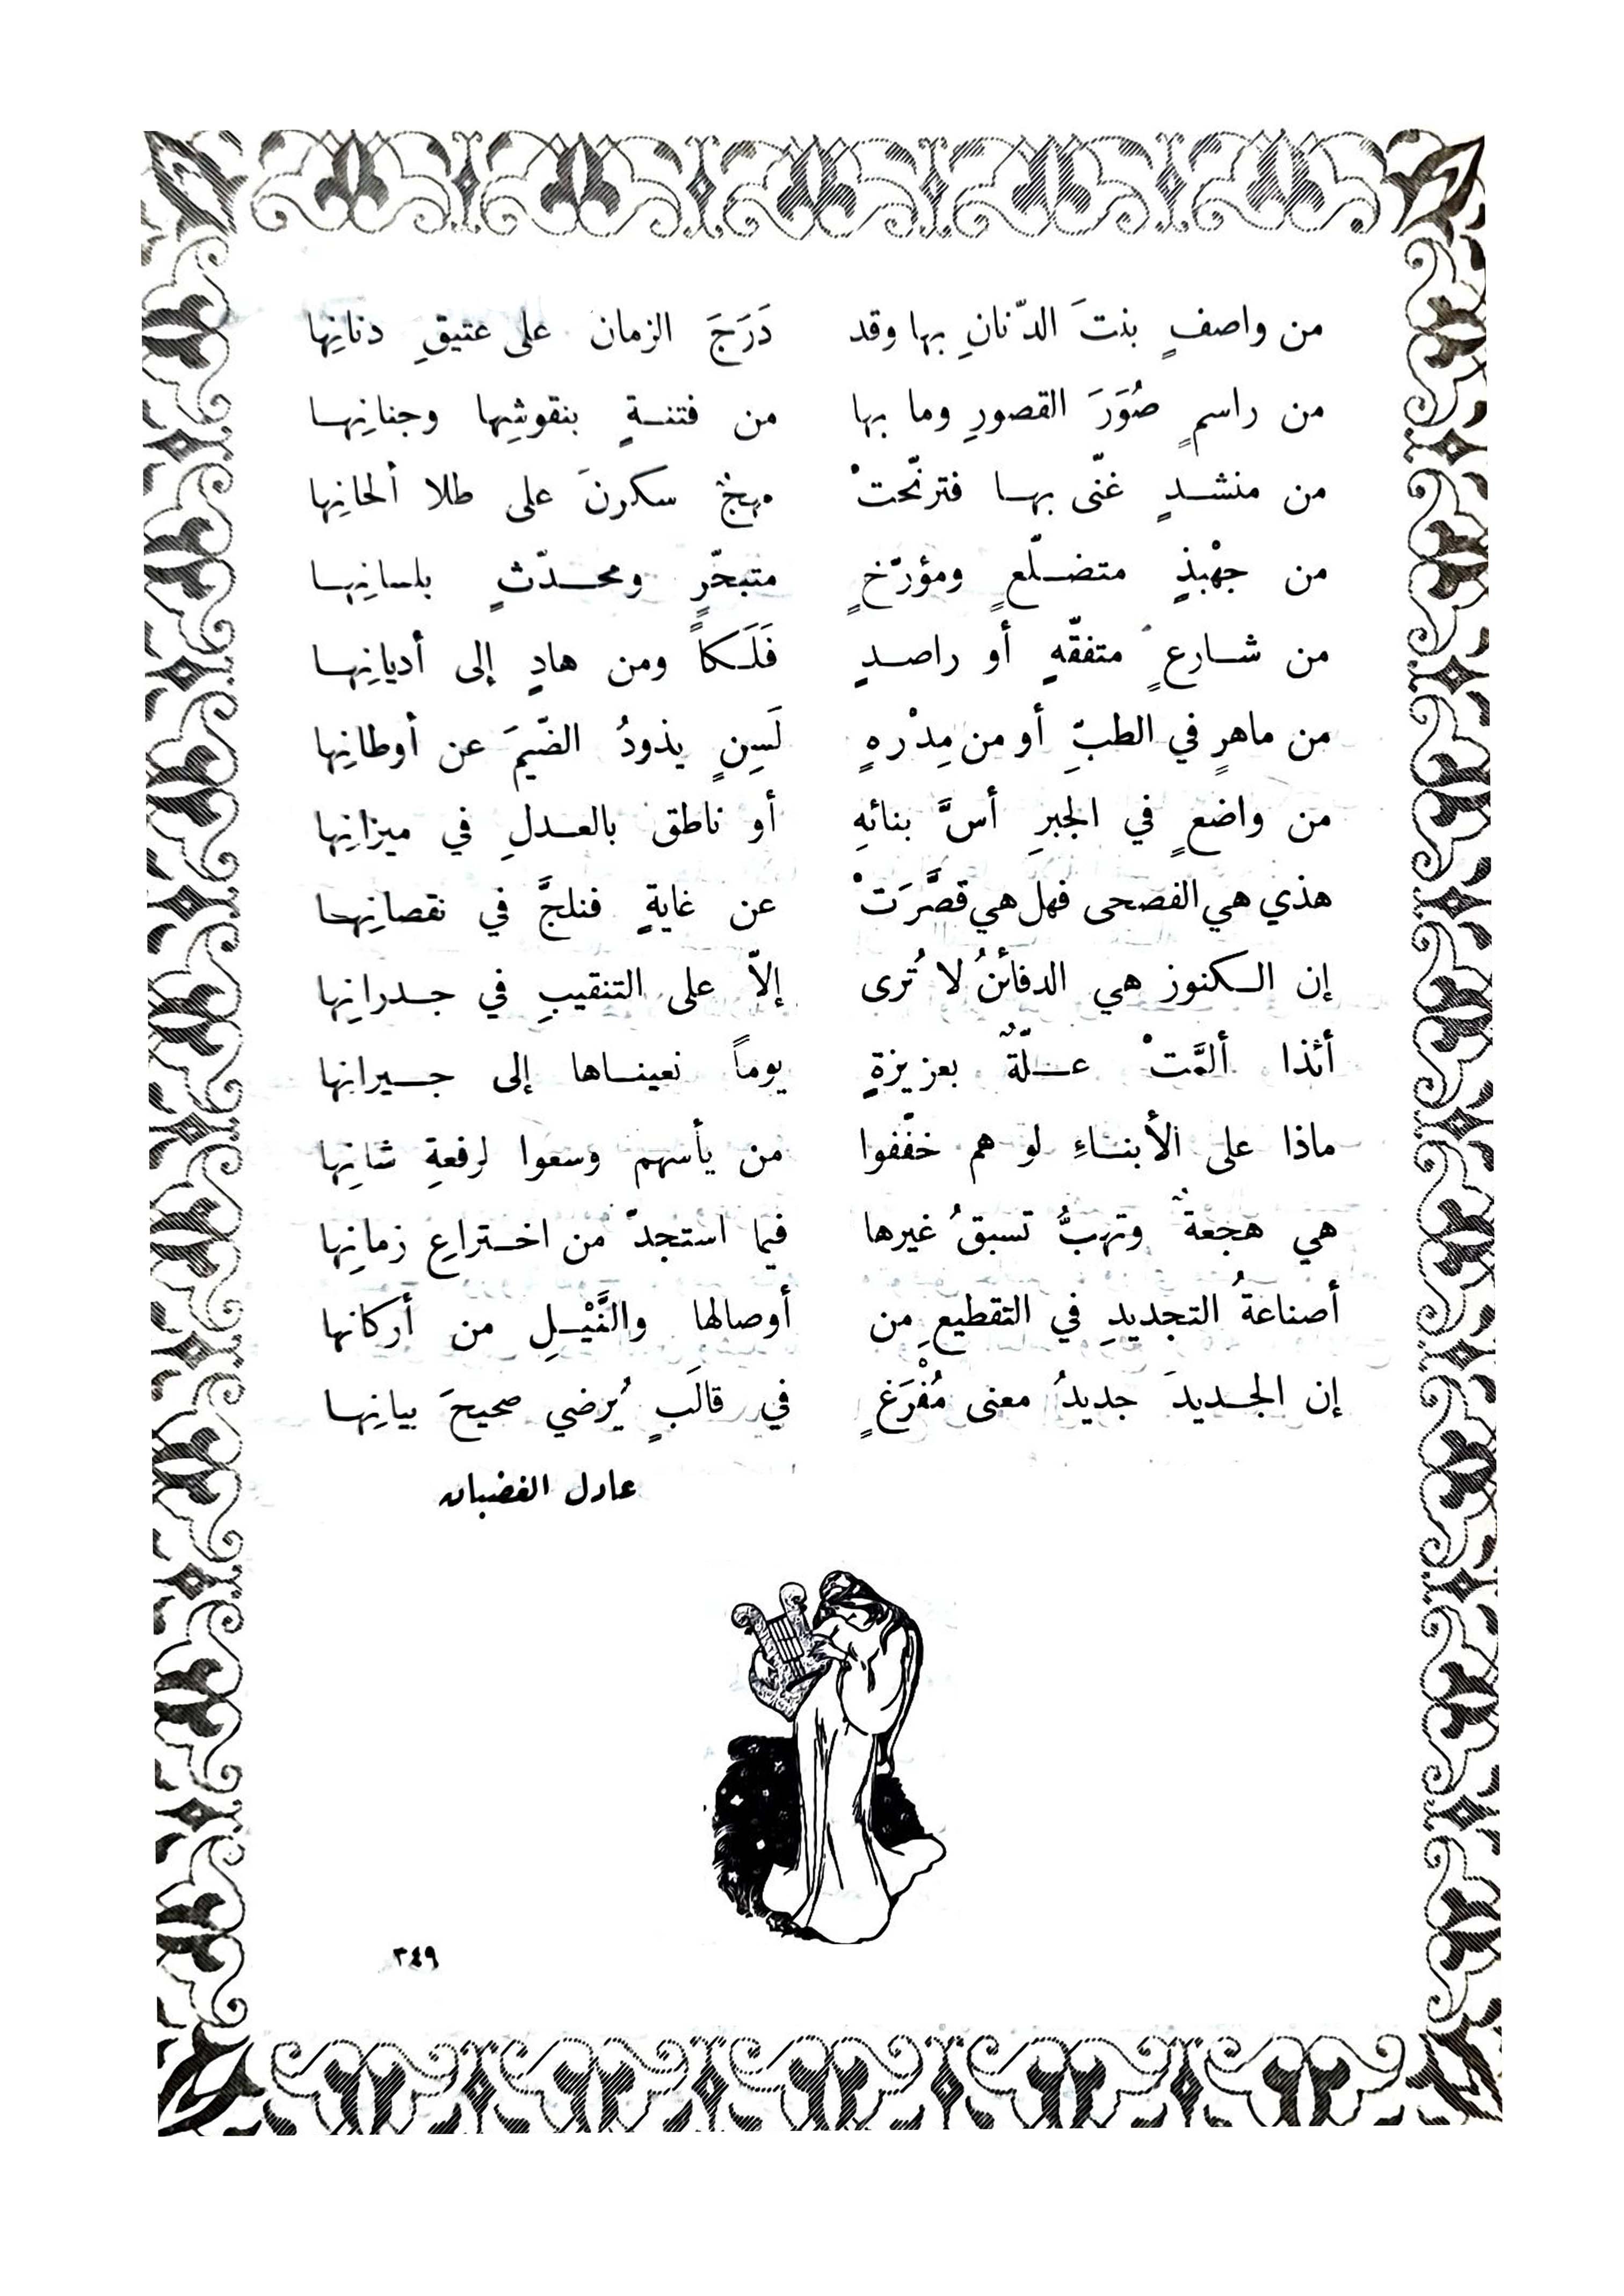 من واصفٍ بنتَ الدّنانِ بها وقد دَرَجَ الزمان على عتيقِ دنانِها
من راسمٍ صُوَرَ القصورِ وما بها من فتنةٍ بنقوشِها وجنانِها
من منشدٍ غنّى بها فترنّحتْ مهجٌ سكرنَ على طلا ألحانِها
من جهْبذٍ متضلّعٍ ومؤرّخٍ متبحّرٍ ومحدّثٍ بلسانِها
من شارعٍ متفقّهٍ أو راصدٍ فَلَكاً ومن هادٍ إلى أديانِها
من ماهرٍ في الطبِّ أو من مِدْرهٍ لَسِنٍ يذودُ الضّيمَ عن أوطانِها
من واضعٍ في الجبرِ أسَّ بنائهِ أو ناطق بالعدلِ في ميزانِها
هذي هي الفصحى فهل هي قصَّرَتْ عن غايةٍ فنلجَّ في نقصانِها
إن الكنوز هي الدفائنُ لا تُرى إلاّ على التنقيبِ في جدرانِها
أئذا ألمَّتْ علّةٌ بعزيزةٍ يوماً نعيناها إلى جيرانِها
ماذا على الأبناءِ لو هم خفّفوا من يأسهم وسعوا لرفعةِ شانِها
هي هجعةٌ وتهبُّ تسبقُ غيرها فيما استجدّ من اختراعِ زمانِها
أصناعةُ التجديدِ في التقطيعِ من أوصالها والنَّيْلِ من أركانها
إن الجديدَ جديدُ معنى مُفْرَغٍ في قالَبٍ يُرضي صحيحَ بيانِها
عادل الغضبان
٢٤٩